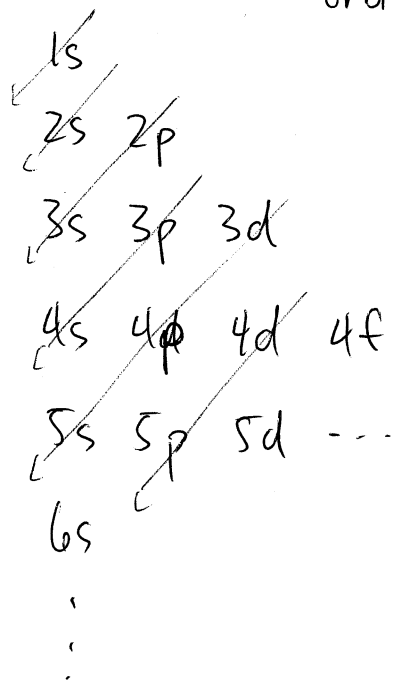 1s
2s 2p
3s 3p 3d
4s 4p 4d 4f
5s 5p 5d ---
6s